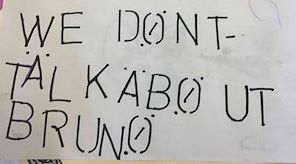 WE DONT-
TALKABOUT
BRUNO